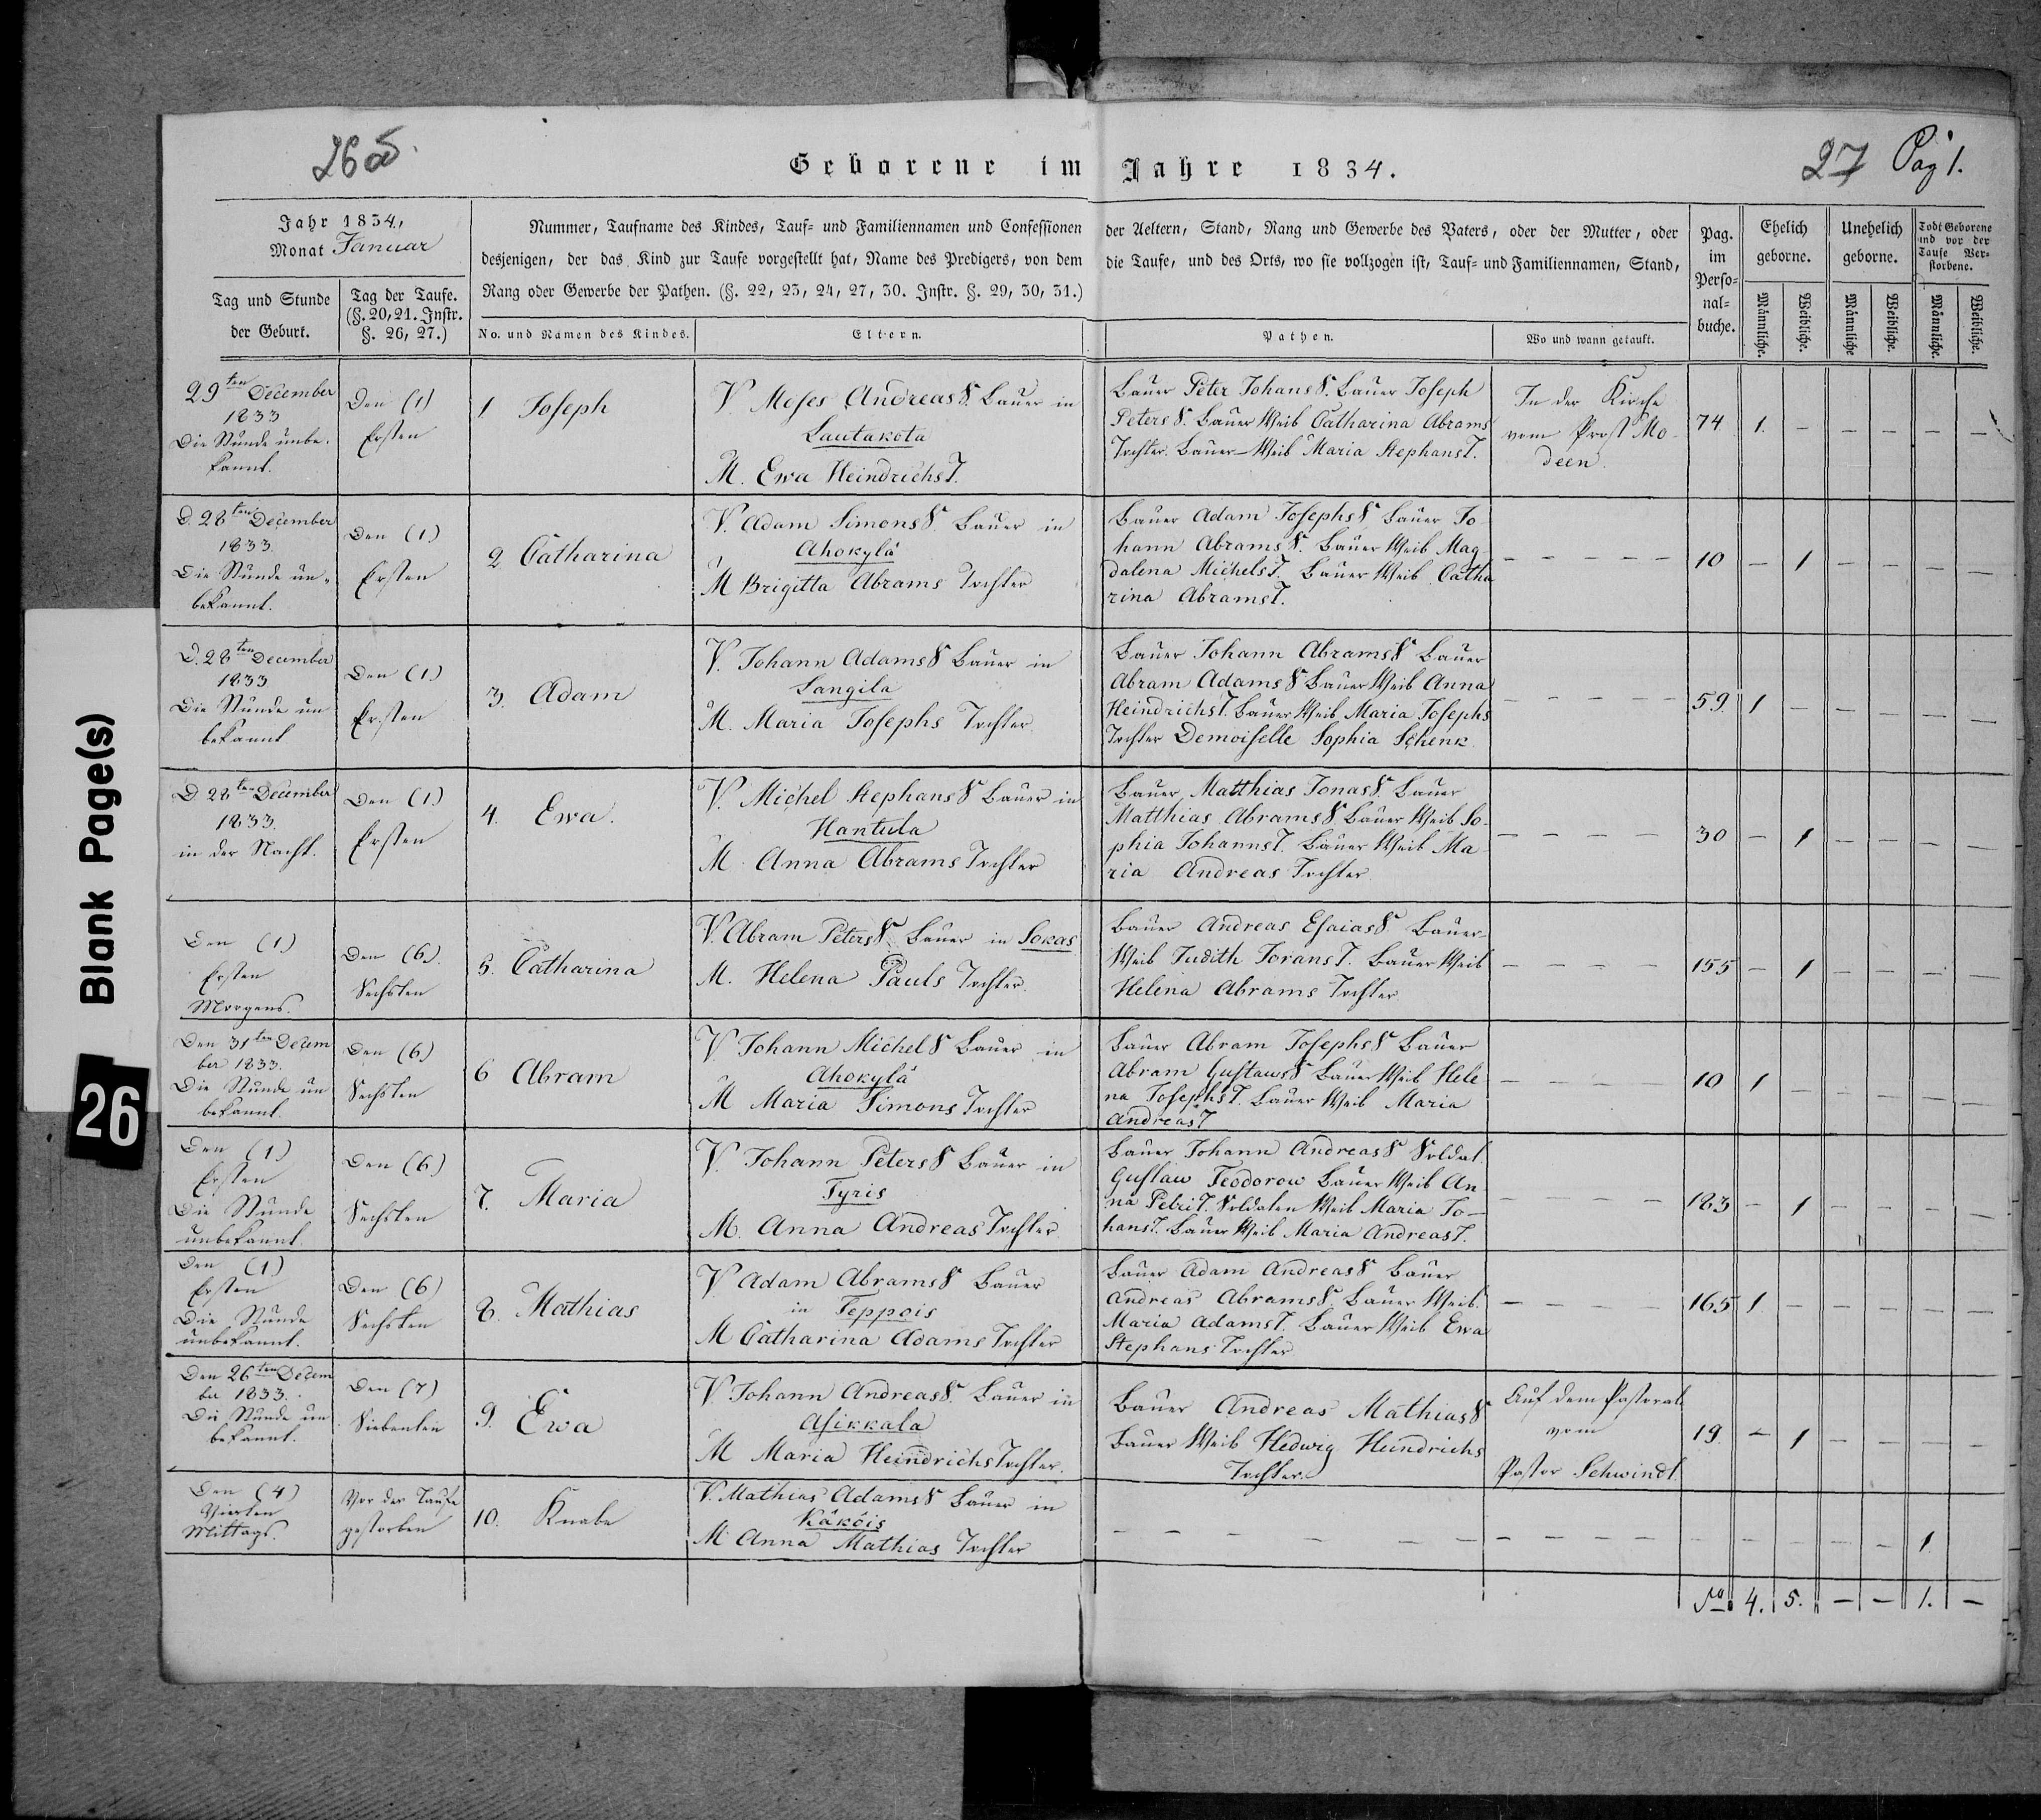 26a
Geborene im Jahre 1834.
27 Pag 1.
Jahr 1834,
Monat Januar
Tag und Stunde
der Geburt.
Tag der Taufe.
(§. 20, 21. Instr.
§. 26, 27.)
Nummer, Taufname des Kindes, Tauf- und Familiennamen und Confessionen der Aeltern, Stand, Rang und Gewerbe des Vaters, oder der Mutter, oder
desjenigen, der das Kind zur Taufe vorgestellt hat, Name des Predigers, von dem die Taufe, und des Orts, wo sie vollzogen ist, Tauf- und Familiennamen, Stand,
Rang oder Gewerbe der Pathen. (§. 22, 23, 24, 27, 30. Instr. §. 29, 30, 31.)
No. und Namen des Kindes.
Eltern.
Pathen.
Wo und wann getauft.
Pag.
im
Perso-
nal-
buche.
Ehelich
geborne.
Unehelich
geborne.
Todt Geborene
und vor der
Taufe Ver-
storbene.
Männliche.
Weibliche.
Männliche
Weibliche.
Männliche.
Weibliche.
29ten December
1833
Die Stunde unbe-
kannt.
Den (1)
Ersten
1. Joseph
V Moses Andreas S. Bauer in
Lautakota
M. Ewa Heindrichs T.
Bauer Peter Johans S. Bauer Joseph
Peters S. Bauer Weib Catharina Abrams
Tochter. Bauer-Weib Maria Stephans T.
In der Kirche
vom Prost Mo-
deen.
74 1. – – – – –
D. 28ten December
1833.
Die Stunde un-
bekannt.
Den (1)
Ersten
2 Catharina
V. Adam Simons S. Bauer in
Ahokylä
M Brigitta Abrams Tochter
Bauer Adam Josephs S Bauer Jo
hann Abrams S. Bauer Weib Mag
dalena Michels T. Bauer Weib Catha
rina Abrams T.
– – – – –
10 – 1 – – – –
D. 28ten December
1833
Die Stunde un
bekannt
Den (1)
Ersten
3. Adam
V. Johann Adams S Bauer in
Langila
M. Maria Josephs Tochter
Bauer Johann Abrams S Bauer
Abram Adams S Bauer Weib Anna
Heindrichs T. Bauer Weib Maria Josephs
Tochter Demoiselle Sophia Schenk
– – – – –
59 1 – – – – –
D 28ten December
1833.
in der Nacht.
Den (1)
Ersten
4. Ewa.
V. Michel Stephans S Bauer in
Hantula
M. Anna Abrams Tochter
Bauer Matthias Jonas S. Bauer
Matthias Abrams S. Bauer Weib So-
phia Johanns T. Bauer Weib Ma
ria Andreas Tochter
– – – – –
30 – 1 – – – –
Den (1)
Ersten
Morgens.
Den (6).
Sechsten
5. Catharina
V. Abram Peters S. Bauer in Sokas
M. Helena Pauls Tochter.
Bauer Andreas Esaias S Bauer-
Weib Judith Jorans T. Bauer Weib
Helena Abrams Tochter
– – – –
155 – 1 – – – –
Den 31ten Decem
ber 1833.
Die Stunde un
bekannt.
Den (6)
Sechsten
6 Abram
V Johann Michel S Bauer in
Ahokylä
M Maria Simons Tochter
Bauer Abram Josephs S Bauer
Abram Gustaws S Bauer Weib Hele
na Josephs T. Bauer Weib Maria
Andreas T
– – – –
10 1 – – – – –
Den (1)
Ersten
Die Stunde
unbekannt.
Den (6)
Sechsten
7. Maria
V. Johann Peters S Bauer in
Tyris
M. Anna Andreas Tochter
Bauer Johann Andreas S Soldat
Gustaw Feodorow Bauer Weib An
na Petri T. Soldaten Weib Maria Jo-
hans T. Bauer Weib Maria Andreas T.
– – – – –
183 – 1 – – – –
Den (1)
Ersten
Die Stunde
unbekannt.
Den (6)
Sechsten
8. Mathias
V Adam Abrams S Bauer
in Teppois
M Catharina Adams Tochter
Bauer Adam Andreas S Bauer
Andreas Abrams S. Bauer Weib
Maria Adams T. Bauer Weib Ewa
Stephans Tochter
– – – –
165 1. – – – – –
Den 26ten Decem
ber 1833.
Die Stunde un
bekannt.
Den (7)
Siebenten
9. Ewa
V Johann Andreas S. Bauer in
Asikkala
M Maria Heindrichs Tochter.
Bauer Andreas Mathias S
Bauer Weib Hedwig Heindrichs
Tochter.
Auf dem Pastorate
vom
Pastor Schwindt.
19 – 1 – – – –
Den (4)
Vierten
Mittags.
Vor der Taufe
gestorben
10. Knabe
V. Mathias Adams S Bauer in
Käköis
M Anna Mathias Tochter
– – – – – –
– – – – –
– – – – – 1.
4. 5. – – 1. –
Blank Page(s)
26